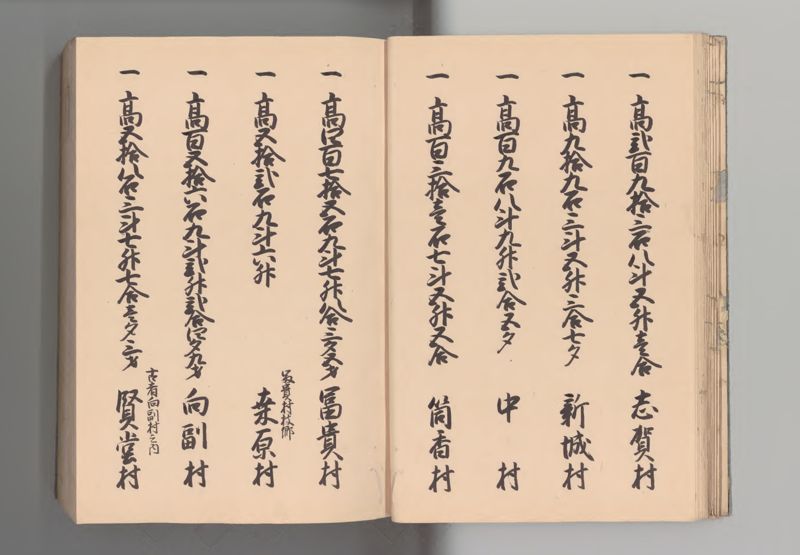 一 高弐百九拾三石八斗五升壱合 志賀村
一 高九拾九石三斗五升三合七夕 新城村
一 高百九石八斗九升弐合五夕 中村
一 高百三拾壱石七斗五升五合 筒香村
一 高四百七拾五石九斗七升八合三夕五才 冨貴村
冨貴村枝郷
一 高五拾弐石九斗六升 桒原村
一 高百五拾六石九斗弐升弐合四夕九才 向副村
古者向副村之内
一 高五拾八石三斗七升七合壱夕三才 賢堂村